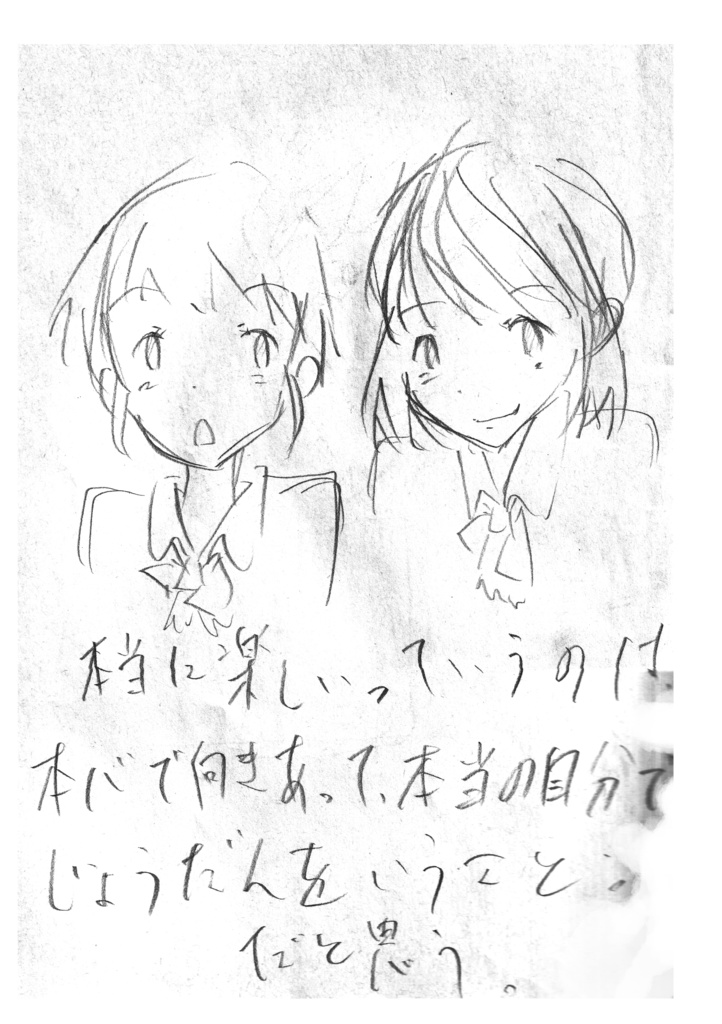 本当に楽しいっていうのは
本心で向きあって、本当の自分で
じょうだんをいうこと
だと思う。